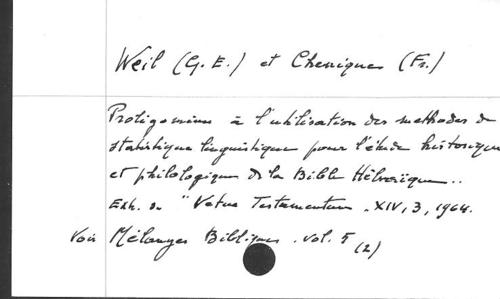 Weil (G. E.) et Chenique (Fr.)
Prolégomènes à l'utilisation des methodes de
statistique linguistique pour l'étude historique
et philologique de la Bible Hébraïque..
Extr. du "Vetus Testamentum. XIV, 3, 1964.
Voir Mélanges Bibliques. vol. 5 (2)